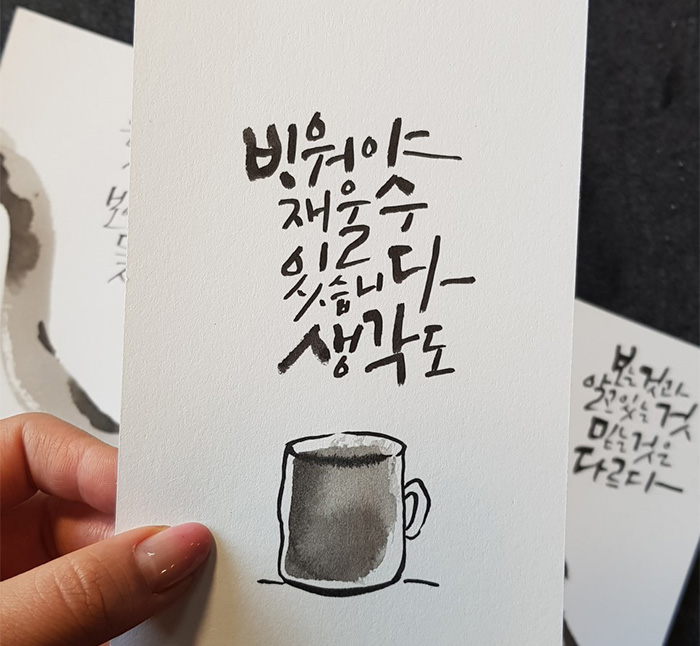 비워야
채울수
있습니다
생각도
보는것과
알고있는 것
믿는것은
다르다